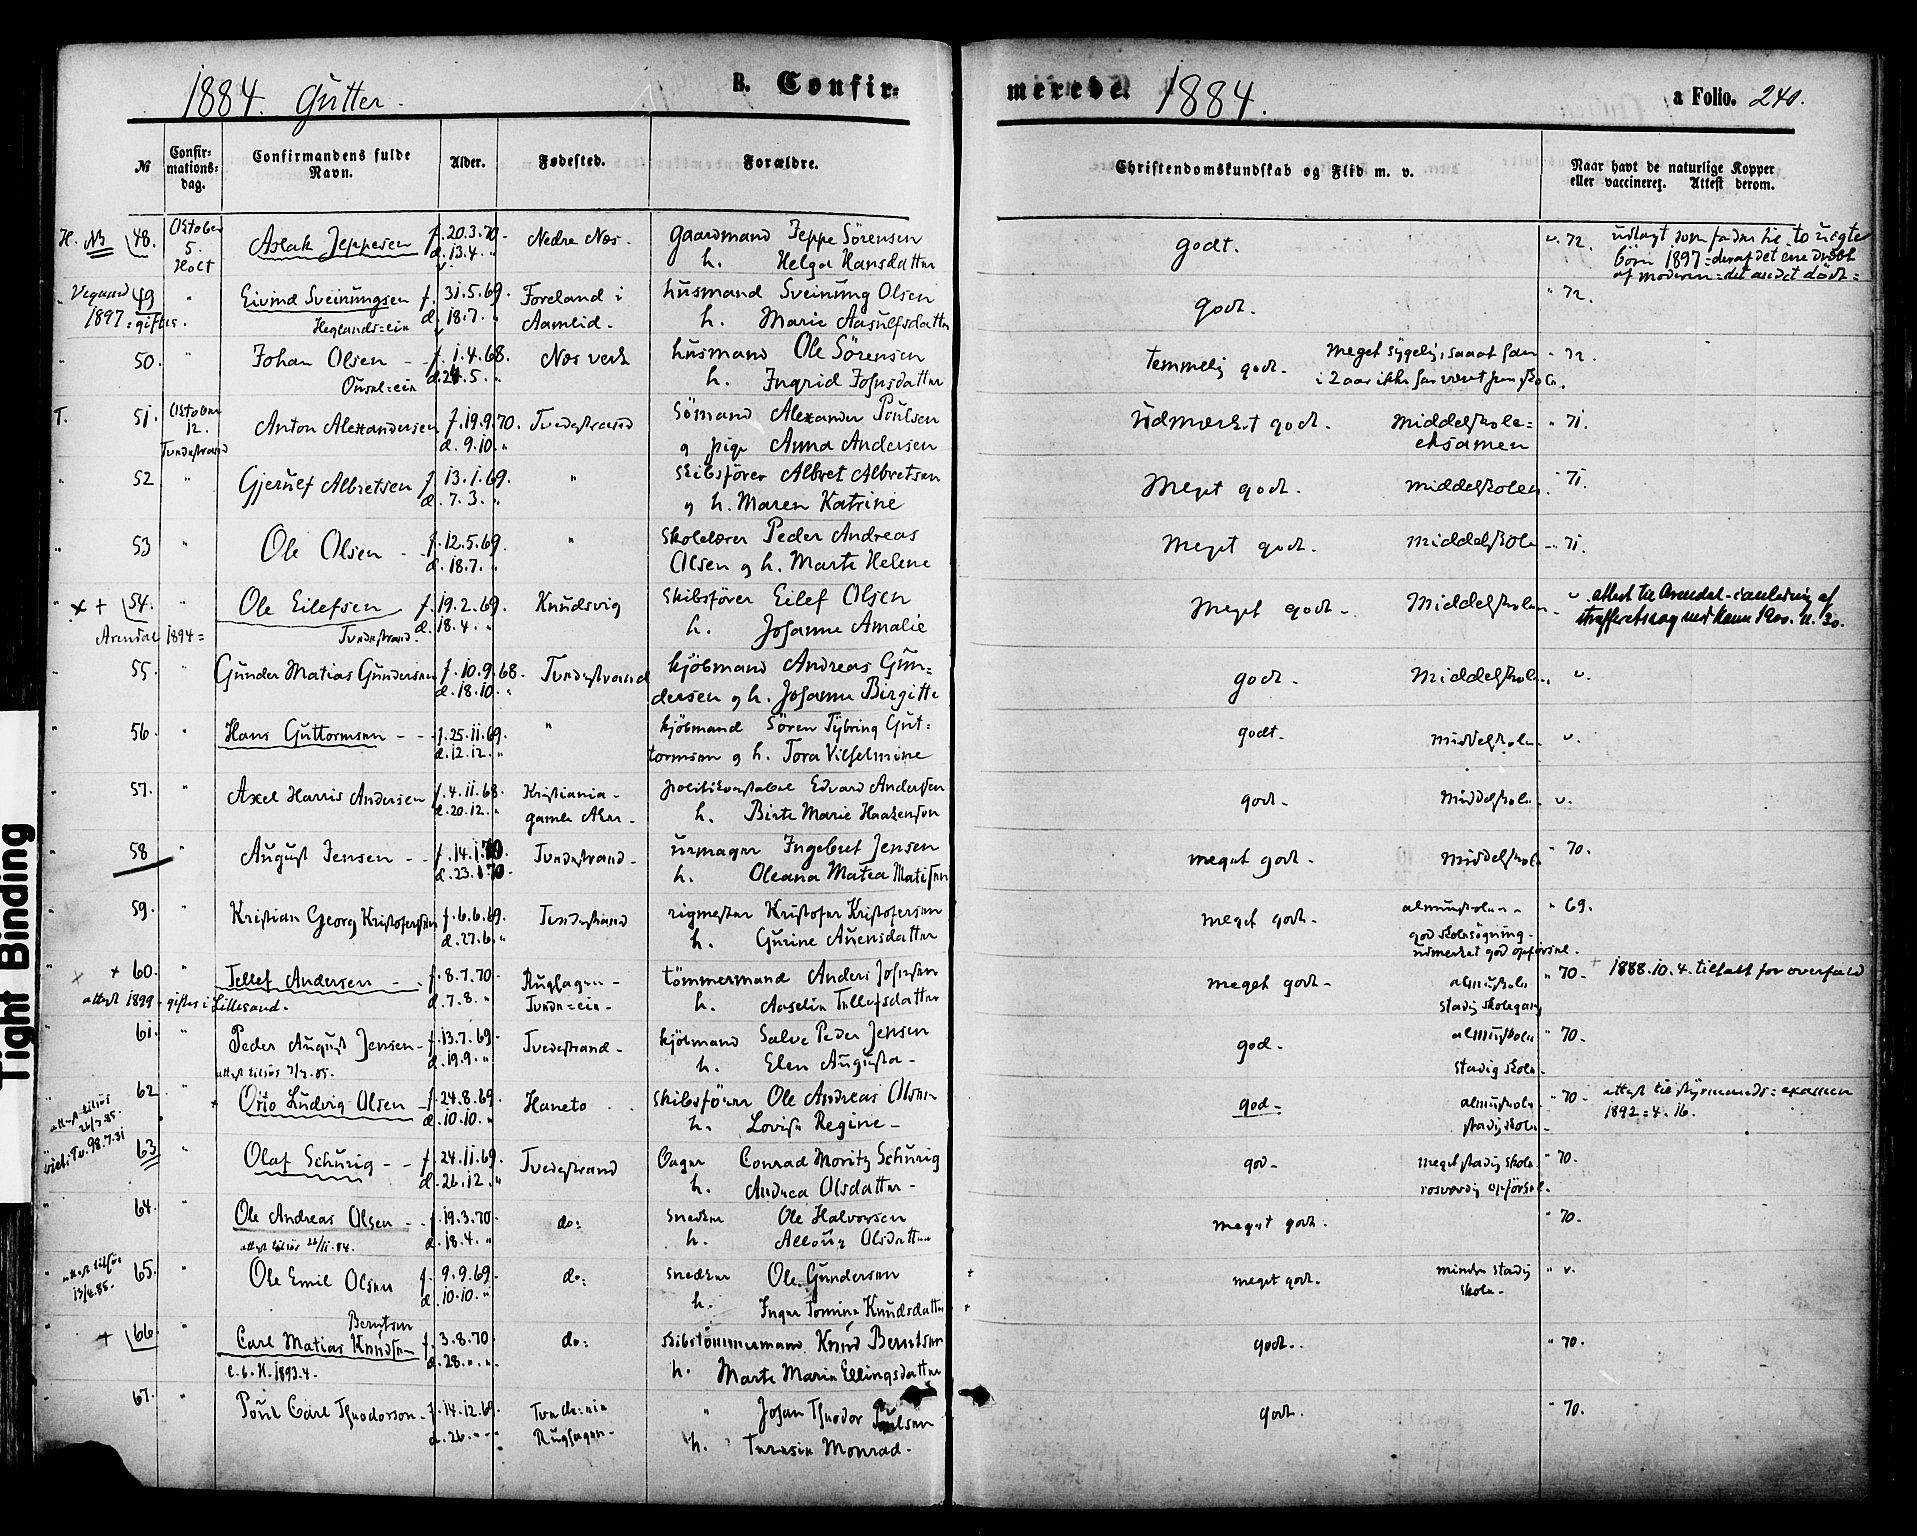 1884. Gutter. B. Confir= merede. 1884. a Folio. 240.
№ Confir-mations-dag. Confirmandens fulde Navn. Alder. Fødested. Forældre. Christendomskundskab og Flid m. v. Naar havt de naturlige Kopper eller vaccineret. Attest derom.
H. 48. Oktober 5. Holt Aslak Jeppesen f. 20.3.70 d. 13.4. " Nedre Nes. gaardmand Jeppe Sörensen h. Helga Hansdatter godt. v. 72. udlagt som fader til to uegte börn 1897 = deraf det ene dræbt af moderen = det andet dödt =
49 " Eivind Sveinungsen f. 31.5.69. d. 18.7. " Foreland i Aamlid. husmand Sveinung Olsen h. Marie Aasulfsdatter godt. " 72.
1897 = giftes.
" 50. " Johan Olsen f. 1.4.68. d. 24.5. " Nes verk husmand Ole Sörensen h. Ingrid Johnsdatter temmelig godt. meget sygelig, saaat han i 2 aar ikke har været paa skole. " 72.
T. 51. Oktober 12. Tvedestrand Anton Alexandersen f. 19.9.70. d. 9.10. " Tvedestrand Sömand Alexander Poulsen og pige Anna Andersen udmerket godt. Middelskole= eksamen " 71.
" 52 " Gjerulf Albretsen f. 13.1.69. d. 7.3. " " Skibsförer Albret Albretsen og h. Maren Katrine Meget godt. middelskolen. " 71.
" 53 " Ole Olsen f. 12.5.69. d. 18.7. " " Skolelærer Peder Andreas Olsen og h. Marte Helene Meget godt. middelskolen " 71.
" x + 54. " Ole Eilefsen f. 19.2.69. d. 18.4. " Knudsvig Skibsförer Eilef Olsen h. Johanne Amalie Meget godt. Middelskolen v. attest til Arendal i anledning af straffesag
Arendal 1894 = Tvedestrand. 1900. 11. 30.
" 55. " Gunder Matias Gundersen f. 10.9.68. d. 18.10. " Tvedestrand kjöbmand Andreas Gun= dersen og h. Johanne Birgitte godt. Middelskolen. v.
" 56. " Hans Guttormsen f. 25.11.69. d. 12.12. " " kjöbmand Sören Tybring Gut= tormsen og h. Tora Vilhelmine godt. middelskolen. v.
" 57. " Axel Harris Andersen f. 4.11.68. d. 20.12. " Kristiania - gamle Aker - politikonstabel Edvard Andersen h. Birte Marie Haakensen godt. Middelskolen. v.
" 58 " August Jensen f. 14.1.70. d. 23.1.70. Tvedestrand - urmager Ingebret Jensen h. Oleana Matea Matisen meget godt. middelskole " 70.
" 59. " Kristian Georg Kristofersen f. 6.6.69. d. 27.6. " Tvedestrand rigmester Kristofer Kristofersen h. Gurine Auensdatter meget godt. almueskolen god skolesögning - udmerket god opförsel. " 69.
" + 60. " Tellef Andersen f. 8.7.70. d. 7.8. " Rughagen - Tvede=ein - tömmermand Anders Johnsen h. Aaselin Tellefsdatter meget godt - almueskole stadig skolegang " 70 - 1888.10.4. tiltalt for overfald
attest 1899 - giftes i Lillesand.
" 61. " Peder August Jensen f. 13.7.69. d. 19.9. " Tvedestrand - kjöbmand Salve Peder Jensen h. Elen Augusta - god. almueskolen stadig skole. " 70.
" 62 " Otto Ludvig Olsen f. 24.8.69. d. 10.10. " Haneto skibsförer Ole Andreas Olsen h. Lovise Regine - god = almueskolen stadig skole. " 70 - attest til styrmands = examen 1892 = 4. 16.
" 63. " Olaf Schurig f. 24.11.69. d. 26.12. " Tvedestrand Conrad Moritz Schurig h. Andrea Olsdatter - god - meget stadig skole rosværdig opförsel. " 70.
" 64. " Ole Andreas Olsen f. 19.3.70. d. 18.4. " do: snedker Ole Halvorsen h. Olsdatter meget godt. " 70.
" 65. " Ole Emil Olsen f. 9.9.69. d. 10.10. " do: snedker Ole Gundersen h. Inger Tomine Knudsdatter meget godt. mindre stadig skole - " v.
" + 66. " Berntsen Carl Matias Knudsen f. 3.8.70. d. 28. " " do: skibstömmermand Knud Berntsen h. Marte Marie Ellingsdatter godt. " 70.
" 67. " Poul Carl Theodorson f. 14.12.69. d. 26. " " Tvede=ein Rughagen - " Johan Theodor Poulsen h. Teresie Monrad. godt. " 70.
Tight Binding